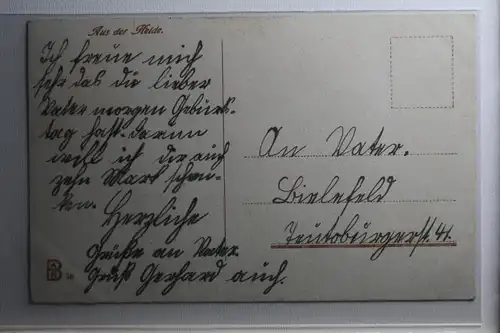 Aus der Heide.
Ich freue mich
sehr das du lieber
Vater morgen Geburts-
tag hast. darum
will ich dir auch
zehn Mark schen-
ken. Herzliche
Grüße an Vater.
Gruß Gerhard auch.
An Vater.
Bielefeld
Teutoburgerstr. 41.
B